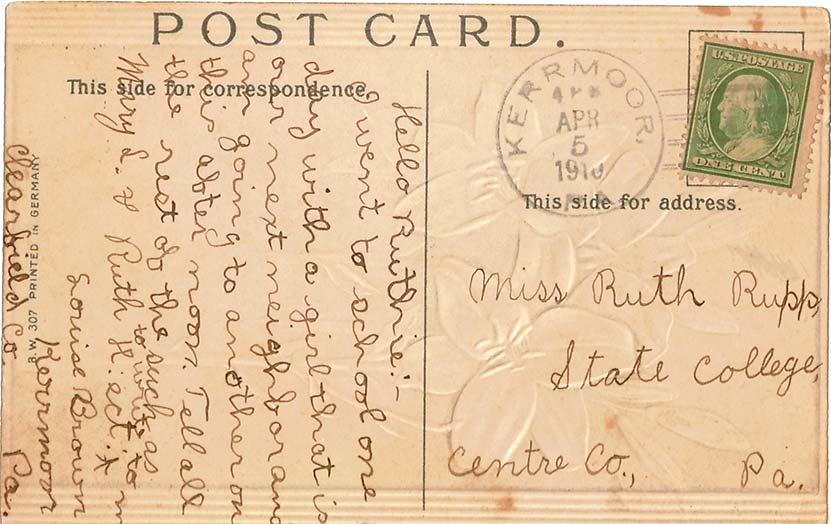 POST CARD.
This side for correspondence.
Hello Ruthie:-
I went to school one
day with a girl that is
our next neighbor and
am going to another on
this after noon. Tell all
the rest of the such as
Mary L. & Ruth H. ect. *
to write to m
Louise Brown
Kerrmoor
Clearfield Co. Pa.
B.W. 307 PRINTED IN GERMANY
KERRMOOR,
APR
5
1910
PA
U.S. POSTAGE
ONE CENT
This side for address.
Miss Ruth Rupp,
State College,
Centre Co., Pa.